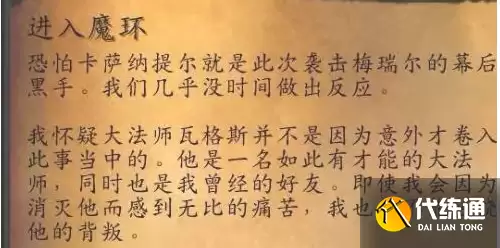 进入魔环
恐怕卡萨纳提尔就是此次袭击梅瑞尔的幕后
黑手。我们几乎没时间做出反应。
我怀疑大法师瓦格斯并不是因为意外才卷入
此事当中的。他是一名如此有才能的大法
师，同时也是我曾经的好友。即使我会因为
消灭他而感到无比的痛苦，我也
他的背叛。
代练通
DAI LIAN TONG